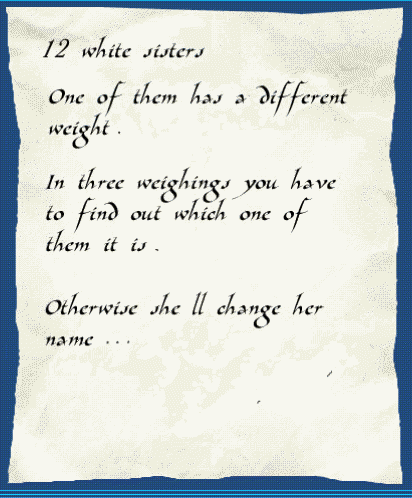 12 white sisters
One of them has a different
weight .
In three weighings you have
to find out which one of
them it is .
Otherwise she ll change her
name ...